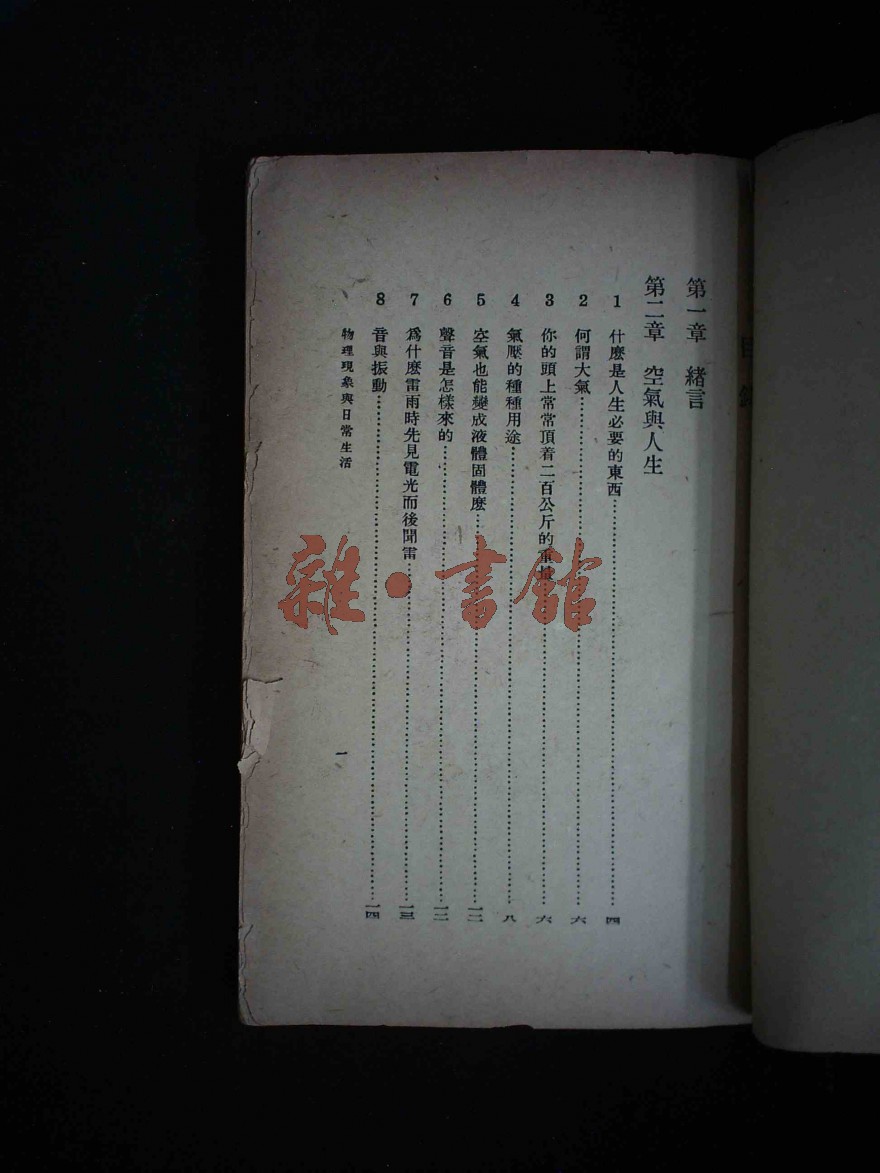 目錄
第一章　緒言
第二章　空氣與人生
1　什麼是人生必要的東西……四
2　何謂大氣……六
3　你的頭上常常頂着二百公斤的重……六
4　氣壓的種種用途……八
5　空氣也能變成液體固體麼……一二
6　聲音是怎樣來的……一二
7　爲什麽雷雨時先見電光而後聞雷……一三
8　音與振動……一四
物理現象與日常生活
一
雜·書館